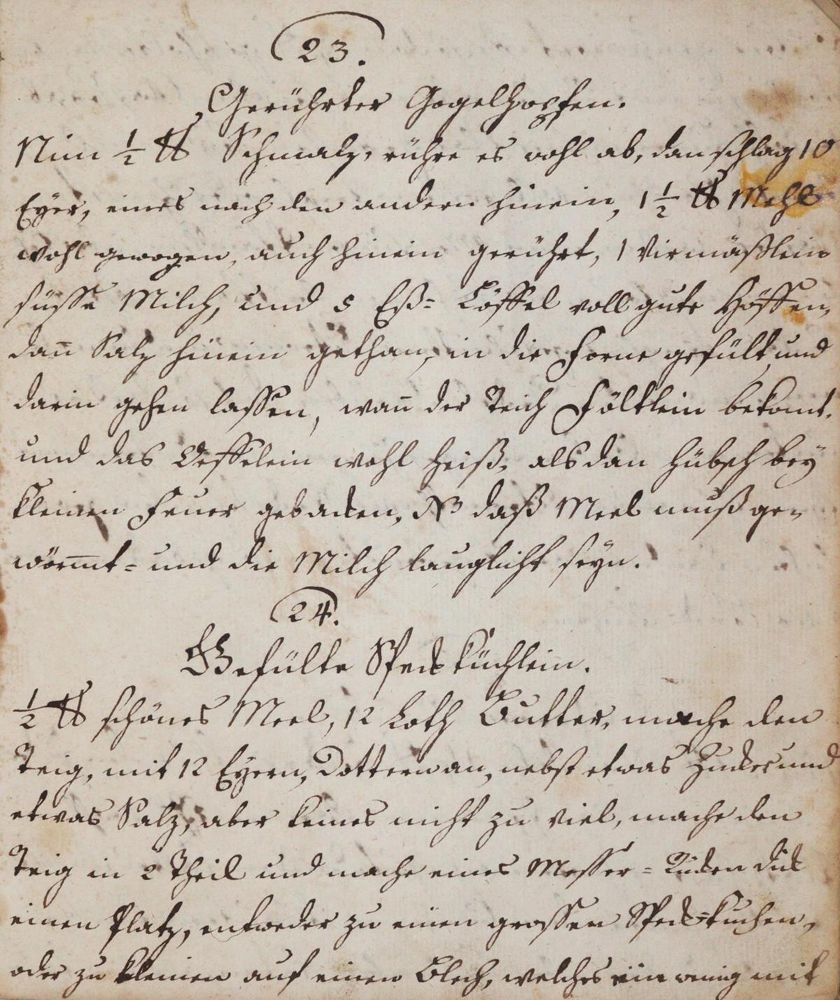 23.
Gerührter Gogelhopfen.
Nim ½ ℔ Schmalz, rühre es wohl ab, dan schlag 10
Eyer, eines nach den andern hinein, 1½ ℔ Mehl
wohl gewogen, auch hinein gerührt, 1 Virmäßlein
süsse Milch, und 5 Eß= Löffel voll gute Höffen,
dan̄ Salz hinein gethan, in die Forme gefült, und
darin gehen lassen, wan̄ der Teich Fältlein bekomt,
und das Oeffelein wohl heiß, als dan hübsch bey
kleinen Feuer gebacken, NB daß Meel muß ge=
wörmt= und die Milch lauglicht seyn.
24.
Gefülte Speckküchlein.
½ ℔ schönes Meel, 12 Loth Butter, mache den
Teig, mit 12 Eyern, Dottern an, nebst etwas Zucker und
etwas Salz, aber keines nicht zu viel, mache den
Teig in 2 Theil und mache eines Messer= Rücken dick
einen Platz, entweder zu einen grossen Speck=kuchen,
oder zu kleinen auf einen Blech, welches ein wenig mit